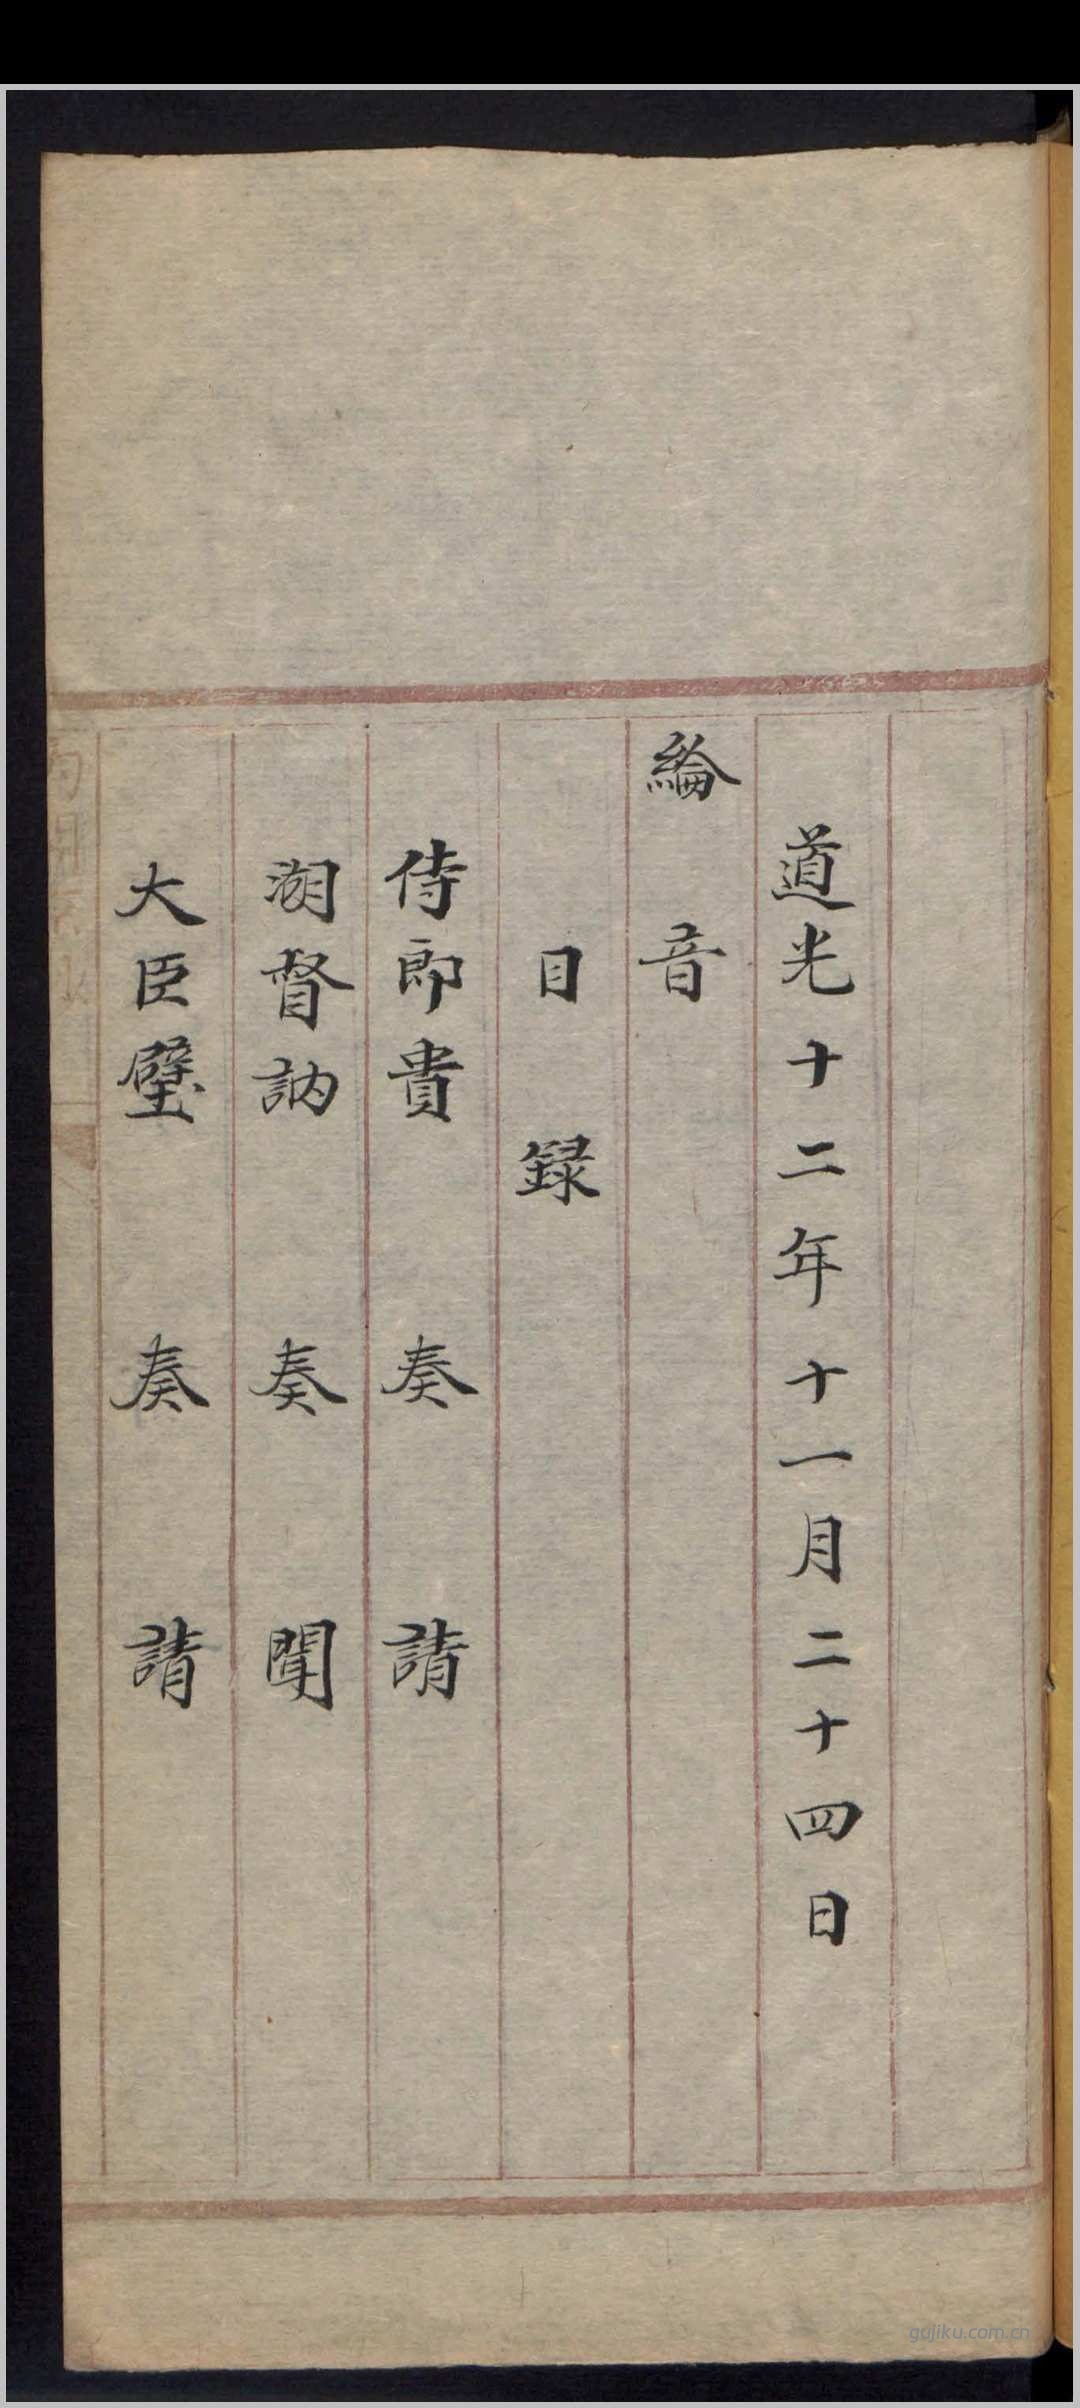 道光十二年十一月二十四日
綸音
目録
侍郎貴 奏 請
湖督訥 奏 聞
大臣璧 奏 請
gujiku.com.cn